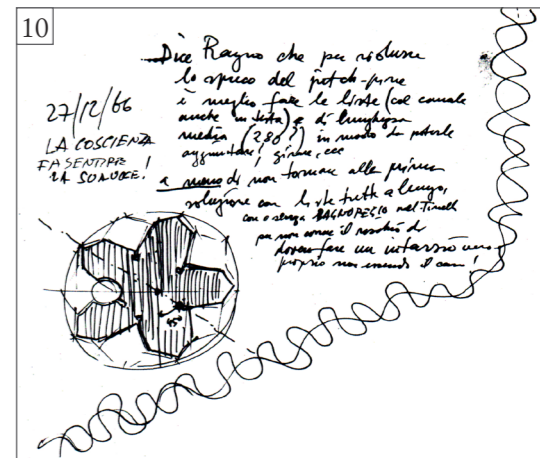 10
Dice Ragno che per ridurre
lo spreco del pitch-pine
è meglio fare le liste (col canale
anche in testa) e di lunghezza
media (2,80?) in modo da poterle
aggiuntare, girare, ecc
a meno di non tornare alla prima
soluzione con liste tutte a lungo,
con o senza BAGNOPEGIO nel Tinelli
per non correre il rischio di
dover fare un intarsio vero e
proprio non essendo il caso!
27/12/66
LA COSCIENZA
FA SENTIRE
LA SUA VOCE!